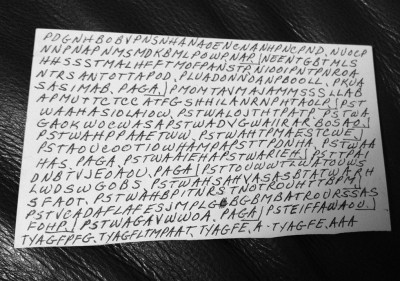 PDGNHBOBVPNSNHANAOENCNANHPNCPND, NVOCP
NNPNAPNMSMDKBMLPOWPNAP NEENTGBTMLS
HHSSSTMALHFFTMOFPANSTP, NIOOIPNTPNROA
NTRSANTOTTAPOD, PLUADONNDANPBOOLL. PKUA
SASIMAB. PAGA. PMOMTAVMAJAMMSSS, LLAB
APMUTTCTCCATFGSHHILANRNPHTAOLP PST
WAAHASIOLAIOW. PSTWALOJTHTPATP. PSTWA
GAOKLWDCWASAPSTWADVGWAIRAR BOSAO.
PSTWAHPPPAAETNW. PSTWAHTPMAESTCWE.
PSTAOUCOOTIOWHAMPAPSTTPDNHA. PSTWAA
HAS. PAGA. PSTWAAIEHAPSTWARIEH. PSTWAH
DNBTVJEOAOU. PAGA. PSTTOUWWTZWATOWS
LWDSWGOBS. PSTWAHSAHVASASBTATWARH
SFAOT. PSTWAHBPITNRSTNOTROUHTTBPM.
PSTVCADAFLAFESJMPLG BGBMBATROURSSAS
FOHP. PSTWAGAVWWOA. PAGA. PSTEIFFAWAOU.
TYAGFPFG. TYAGFLTMPAAT. TYAGFE. A. TYAGFE. AAA